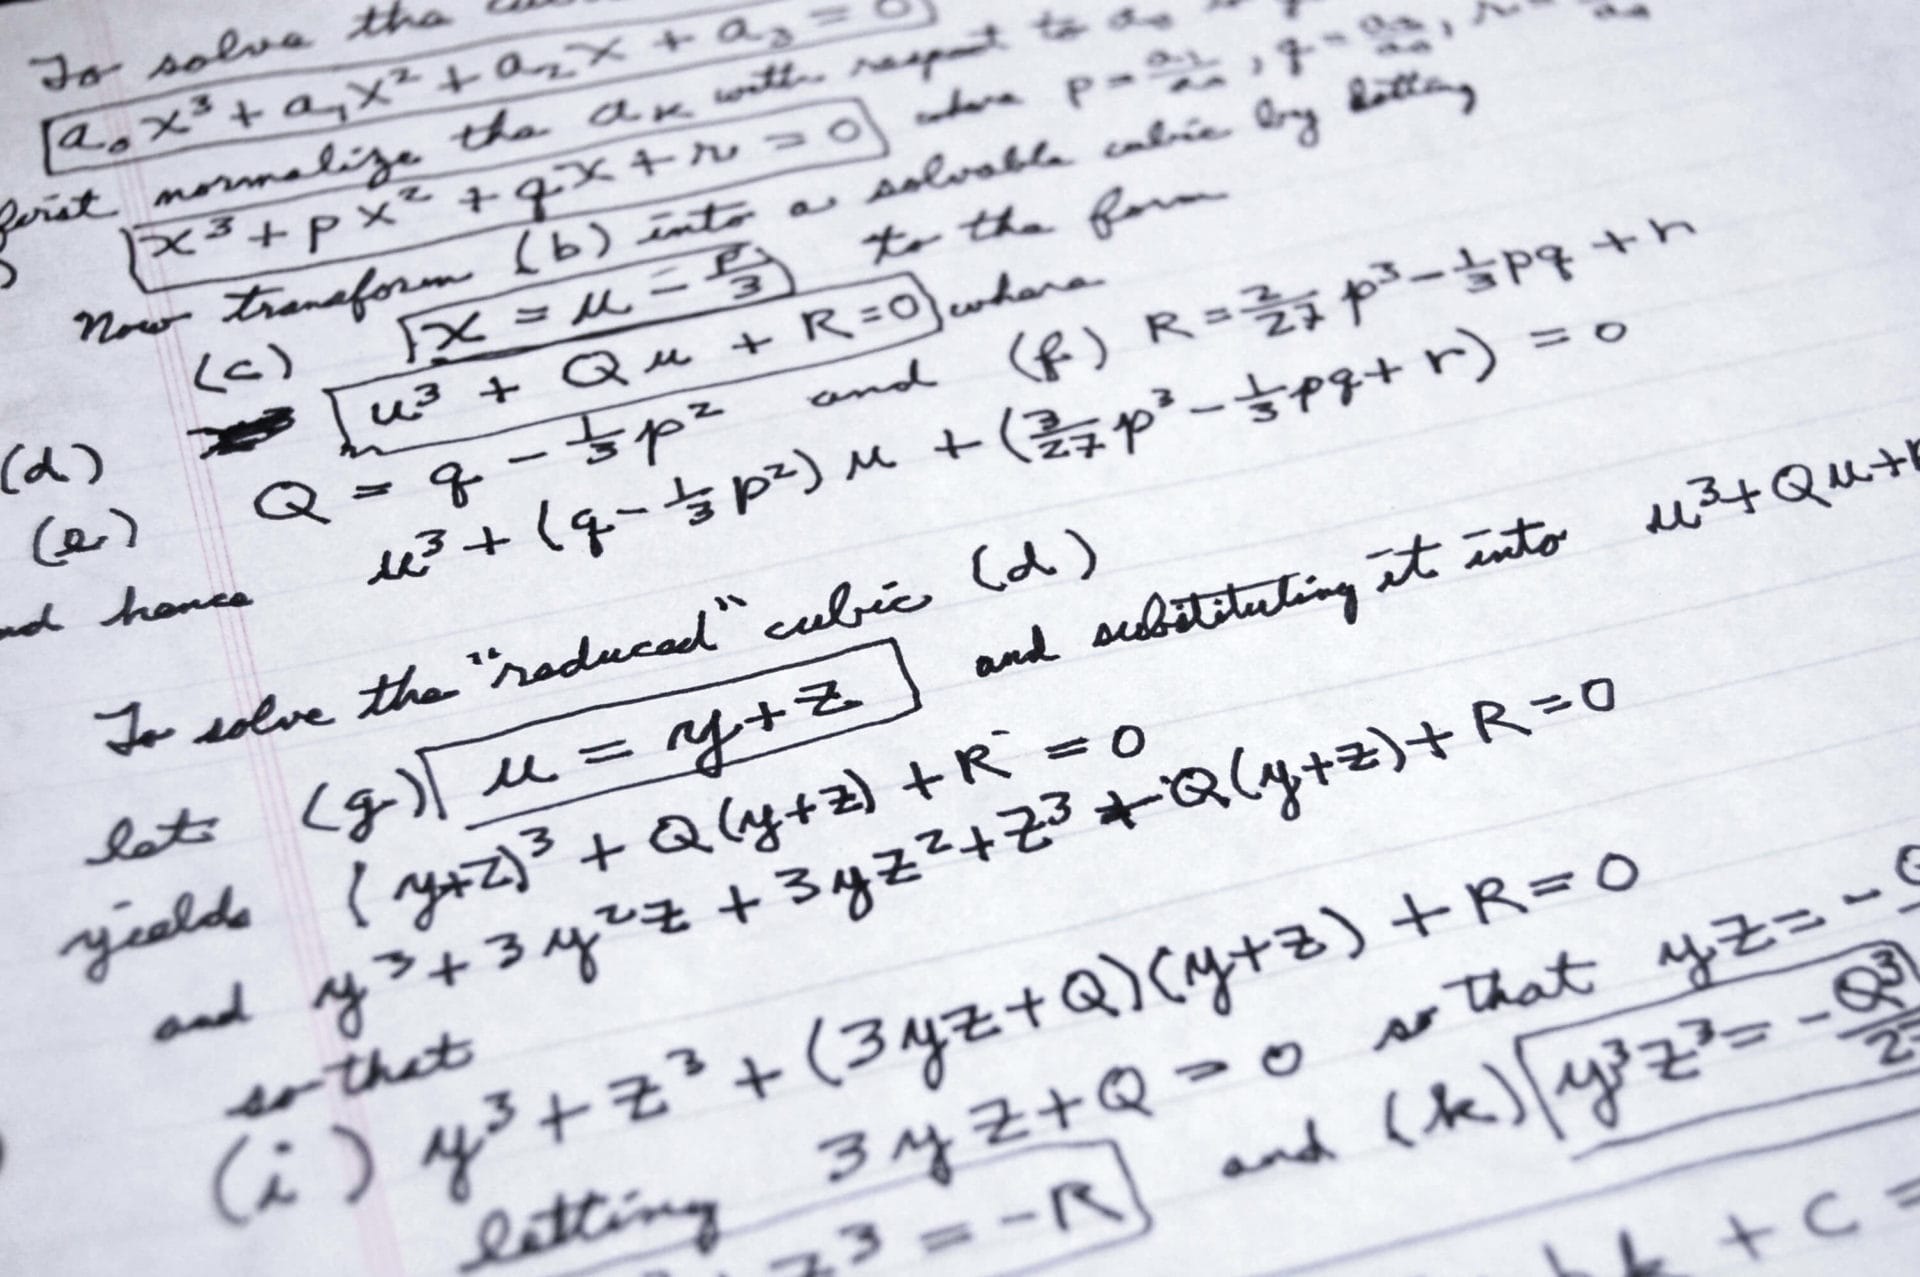 To solve the
a₀x³ + a₁x² + a₂x + a₃ = 0
first normalize the aₖ with respect to a₀
x³ + px² + qx + r = 0 where p = a₁/a₀, q = a₂/a₀,
Now transform (b) into a solvable cubic by letting
(c) x = u - p/3 to the form
(d) u³ + Qu + R = 0 where
(e) Q = q - 1/3 p² and (f) R = 2/27 p³ - 1/3 pq + r
hence u³ + (q - 1/3 p²) u + (2/27 p³ - 1/3 pq + r) = 0
To solve the "reduced" cubic (d)
let (g) u = y + z and substituting it into u³ + Qu +
yields (y+z)³ + Q(y+z) + R = 0
and y³ + 3y²z + 3yz² + z³ + Q(y+z) + R = 0
so that
(i) y³ + z³ + (3yz + Q)(y+z) + R = 0
letting 3yz + Q = 0 so that yz = -
z³ = -R and (k) y³z³ = -Q³/27
+ c =